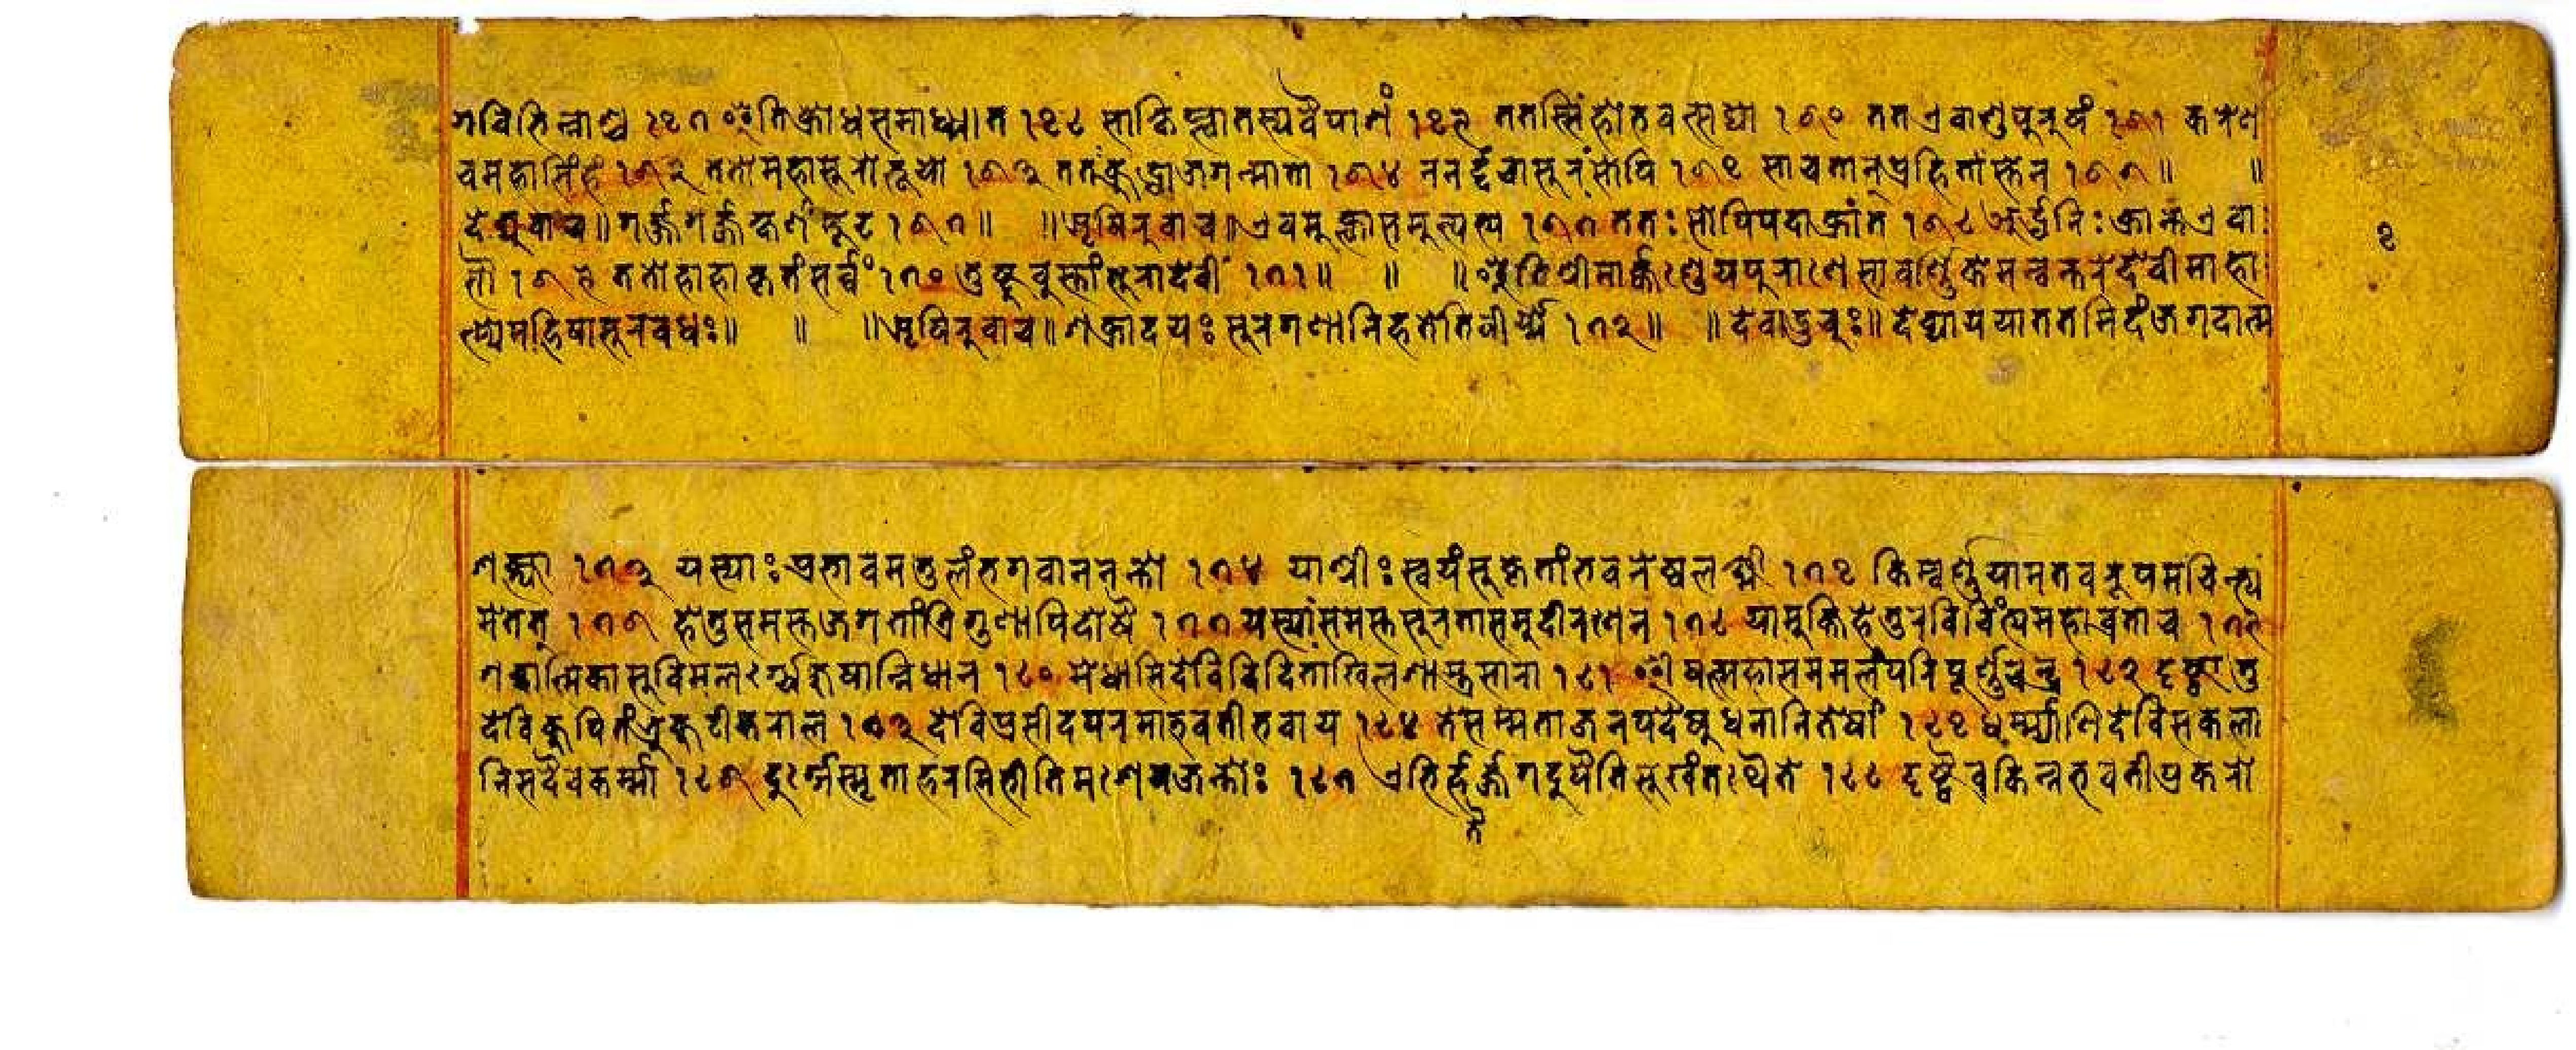 गविभिन्नाश्च १५७ इति क्रोधसमाध्मात १५८ साक्षिप्त्वातस्यवैपाशं १५९ ततस्सिंहोभवत्सद्यो १६० ततएवाशुपुरुषं १६१ करेण
चमहासिंहं १६२ ततोमहासुरोभूयो १६३ ततंक्रुद्धाजगन्माता १६४ ननर्द्दचासुरंसोपि १६५ साचतान्प्रहितांस्तेन १६६॥ ॥
देव्युवाच॥गर्ज्जगर्ज्जक्षणंमूढ १६७॥ ॥ऋषिरुवाच॥एवमुक्त्वासमुत्पत्य १६७ ततःसोपिपदाक्रांत १६८ अर्द्धनिःक्रान्तएवा
सौ १६९ ततोहाहाकृतंसर्व्वं १७० तुष्टुवुस्तांसुरादेवीं १७१॥ ॥ ॥इतिश्रीमार्क्कण्डेयपुराणेसावर्ण्णिकेमन्वन्तरेदेवीमाहा
त्म्येमहिषासुरवधः॥ ॥ ॥ऋषिरुवाच॥शक्रादयःसुरगणानिहतेतिवीर्य्ये १७२॥ ॥देवाऊचुः॥देव्याययाततमिदंजगदात्म
शक्त्या १७३ यस्याःप्रभावमतुलंभगवाननन्तो १७४ याश्रीःस्वयंसुकृतीनांभवनेष्वलक्ष्मी १७५ किम्वर्ण्णयामतवरूपमचिन्त्य
मेतत् १७६ हेतुसमस्तजगतांत्रिगुणापिदोषै १७७ यस्यांसमस्तसुरतासमुदीरणेन १७८ यामुक्तिहेतुरविचिंत्यमहाव्रताच १७९
शब्दात्मिकासुविमलर्ग्यजुषान्निधान १८० मेधासिदेविविदिताखिलशास्त्रसारा १८१ ईषत्सहासममलंपरिपूर्ण्णचन्द्र १८२ दृष्ट्वातु
देविकुपितंभ्रुकुटीकराल १८३ देविप्रसीदपरमाभवतीभवाय १८४ तेसम्मताजनपदेषुधनानितेषां १८५ धर्म्म्याणिदेविसकला
निसदैवकर्म्मा १८६ दुर्गेस्मृताहरसिभीतिमशेषजन्तोः १८७ एभिर्हतैर्ज्जगदुपैतिसुखंतथैते १८८ दृष्ट्वैवकिन्नभवतीप्रकरो